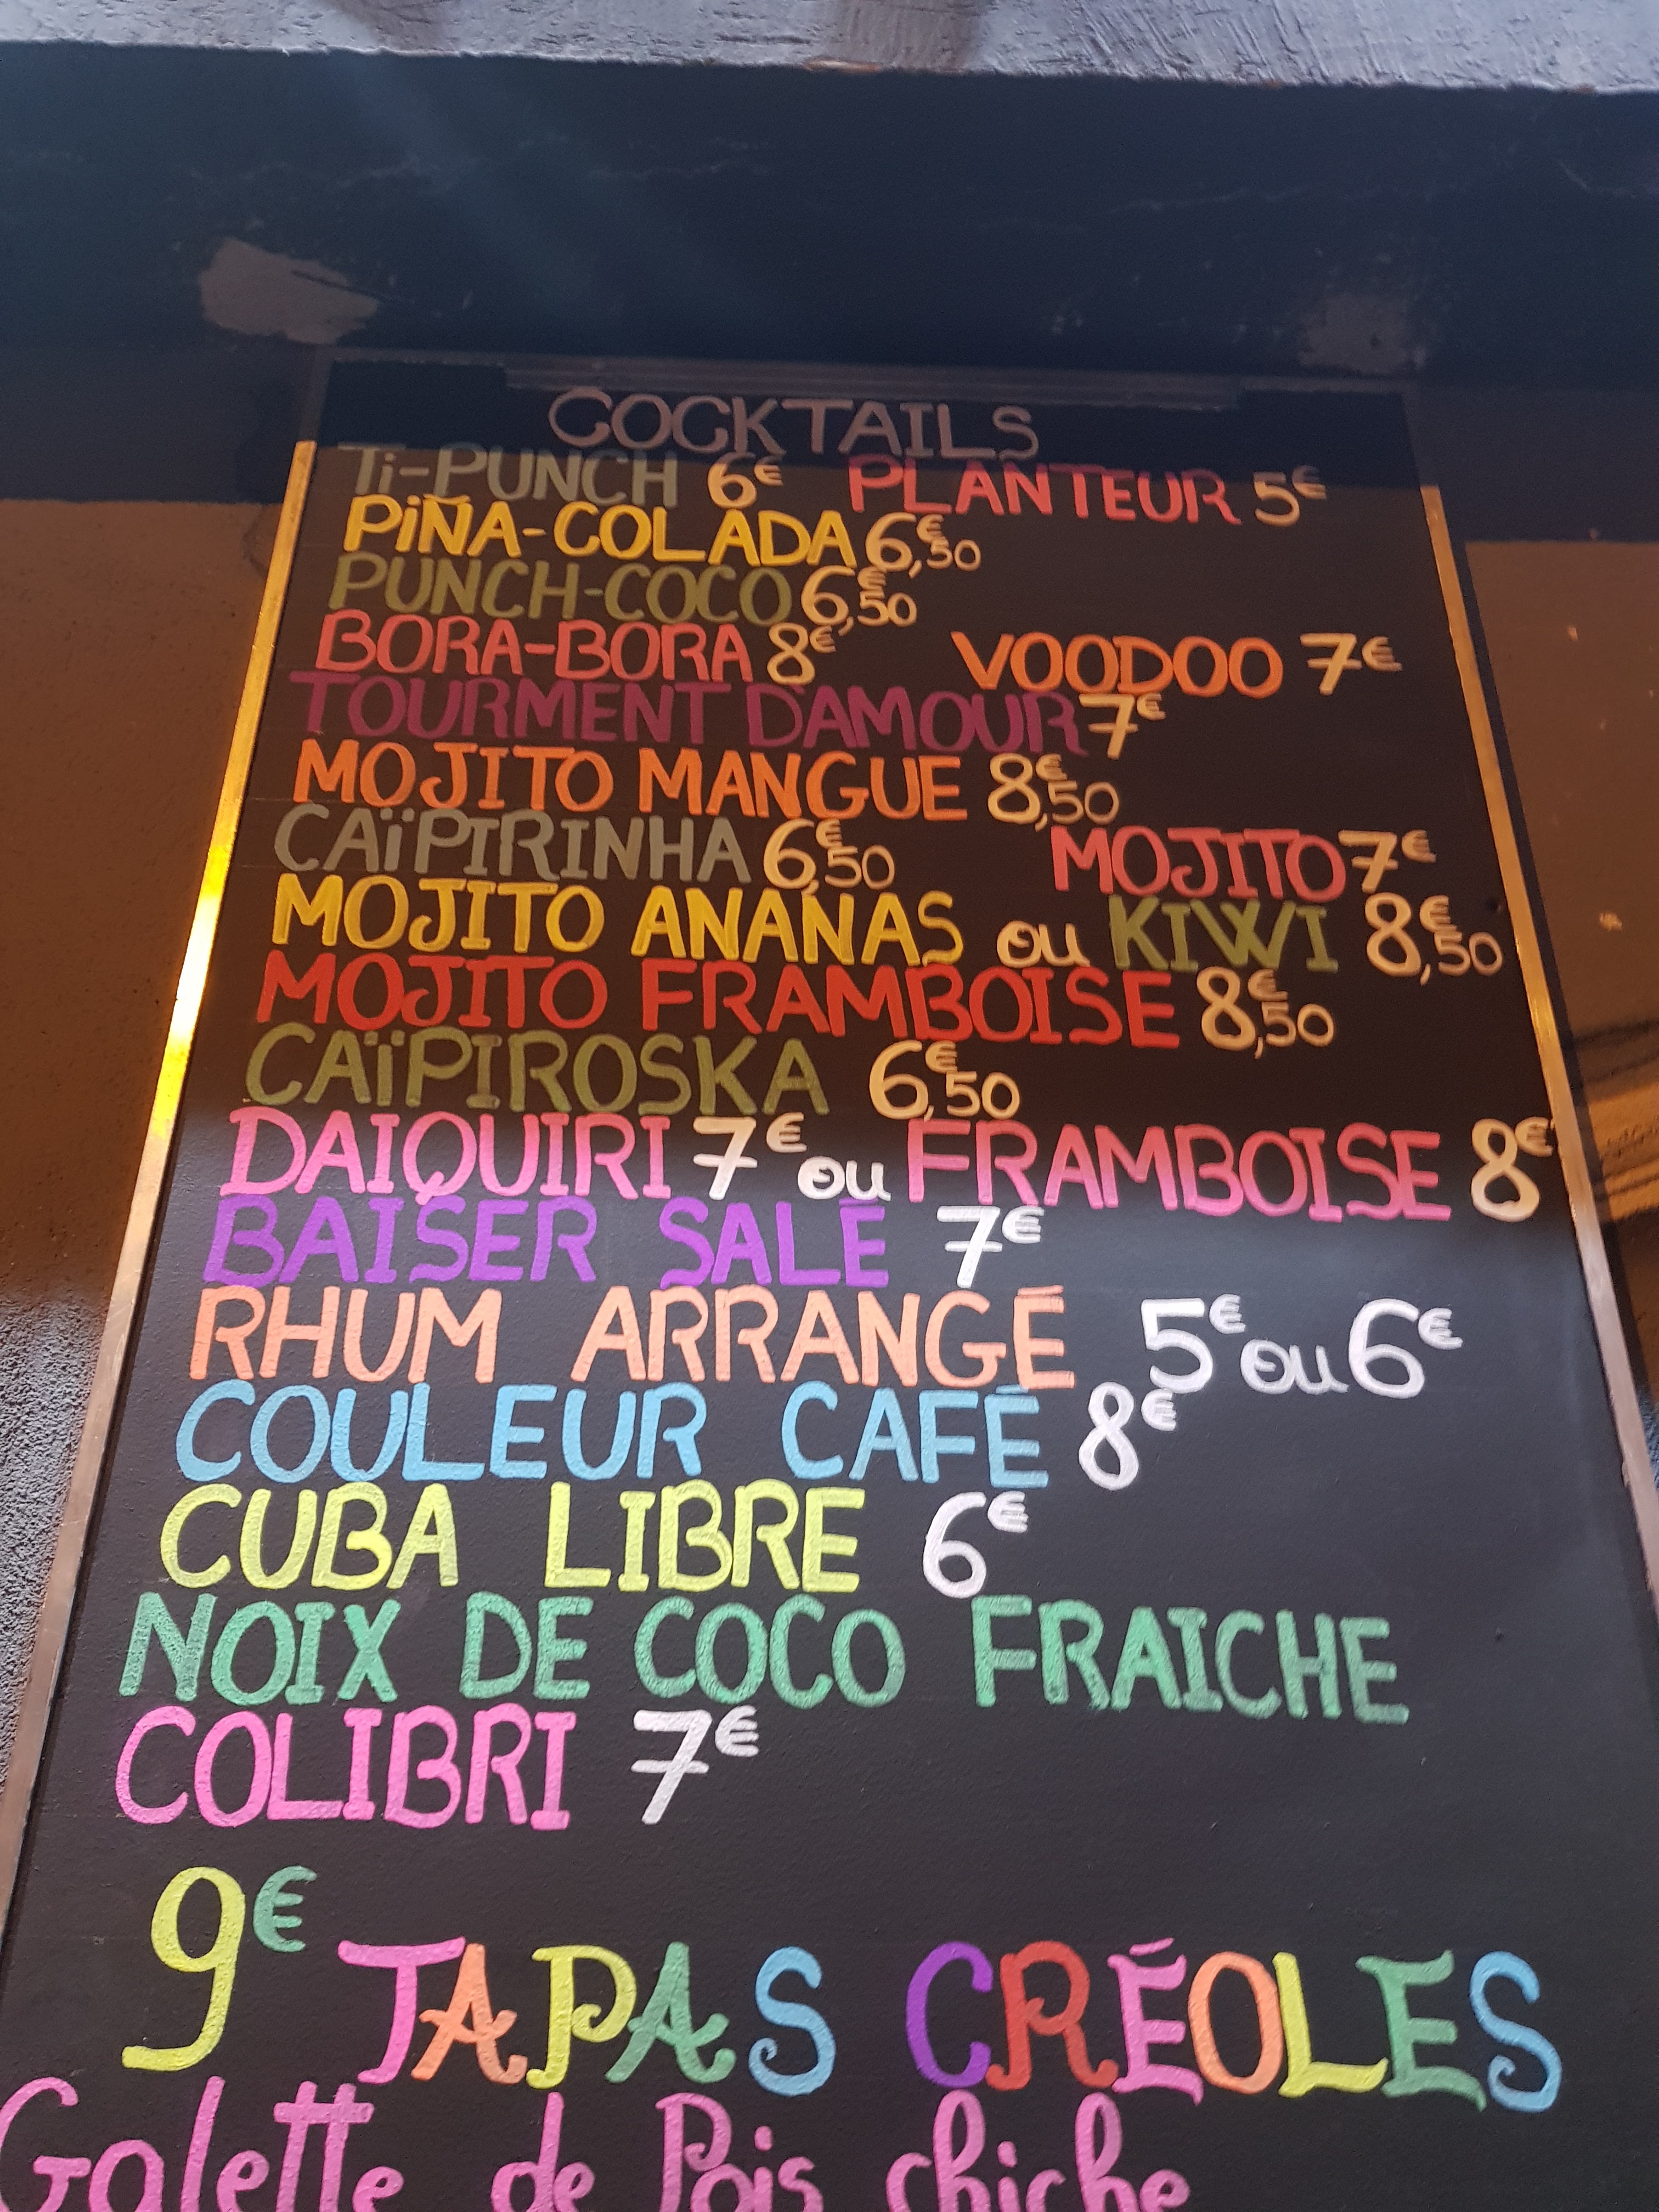 COCKTAILS
Ti-PUNCH 6€ PLANTEUR 5€
PiÑA-COLADA 6,€50
PUNCH-COCO 6,€50
BORA-BORA 8€ VOODOO 7€
TOURMENT D'AMOUR 7€
MOJITO MANGUE 8,€50
CAïPIRINHA 6,€50 MOJITO 7€
MOJITO ANANAS ou KIWI 8,€50
MOJITO FRAMBOISE 8,€50
CAïPIROSKA 6,€50
DAIQUIRI 7€ ou FRAMBOISE 8€
BAISER SALÉ 7€
RHUM ARRANGÉ 5€ ou 6€
COULEUR CAFÉ 8€
CUBA LIBRE 6€
NOIX DE COCO FRAICHE
COLIBRI 7€
9€ TAPAS CRÉOLES
Galette de Pois chiche